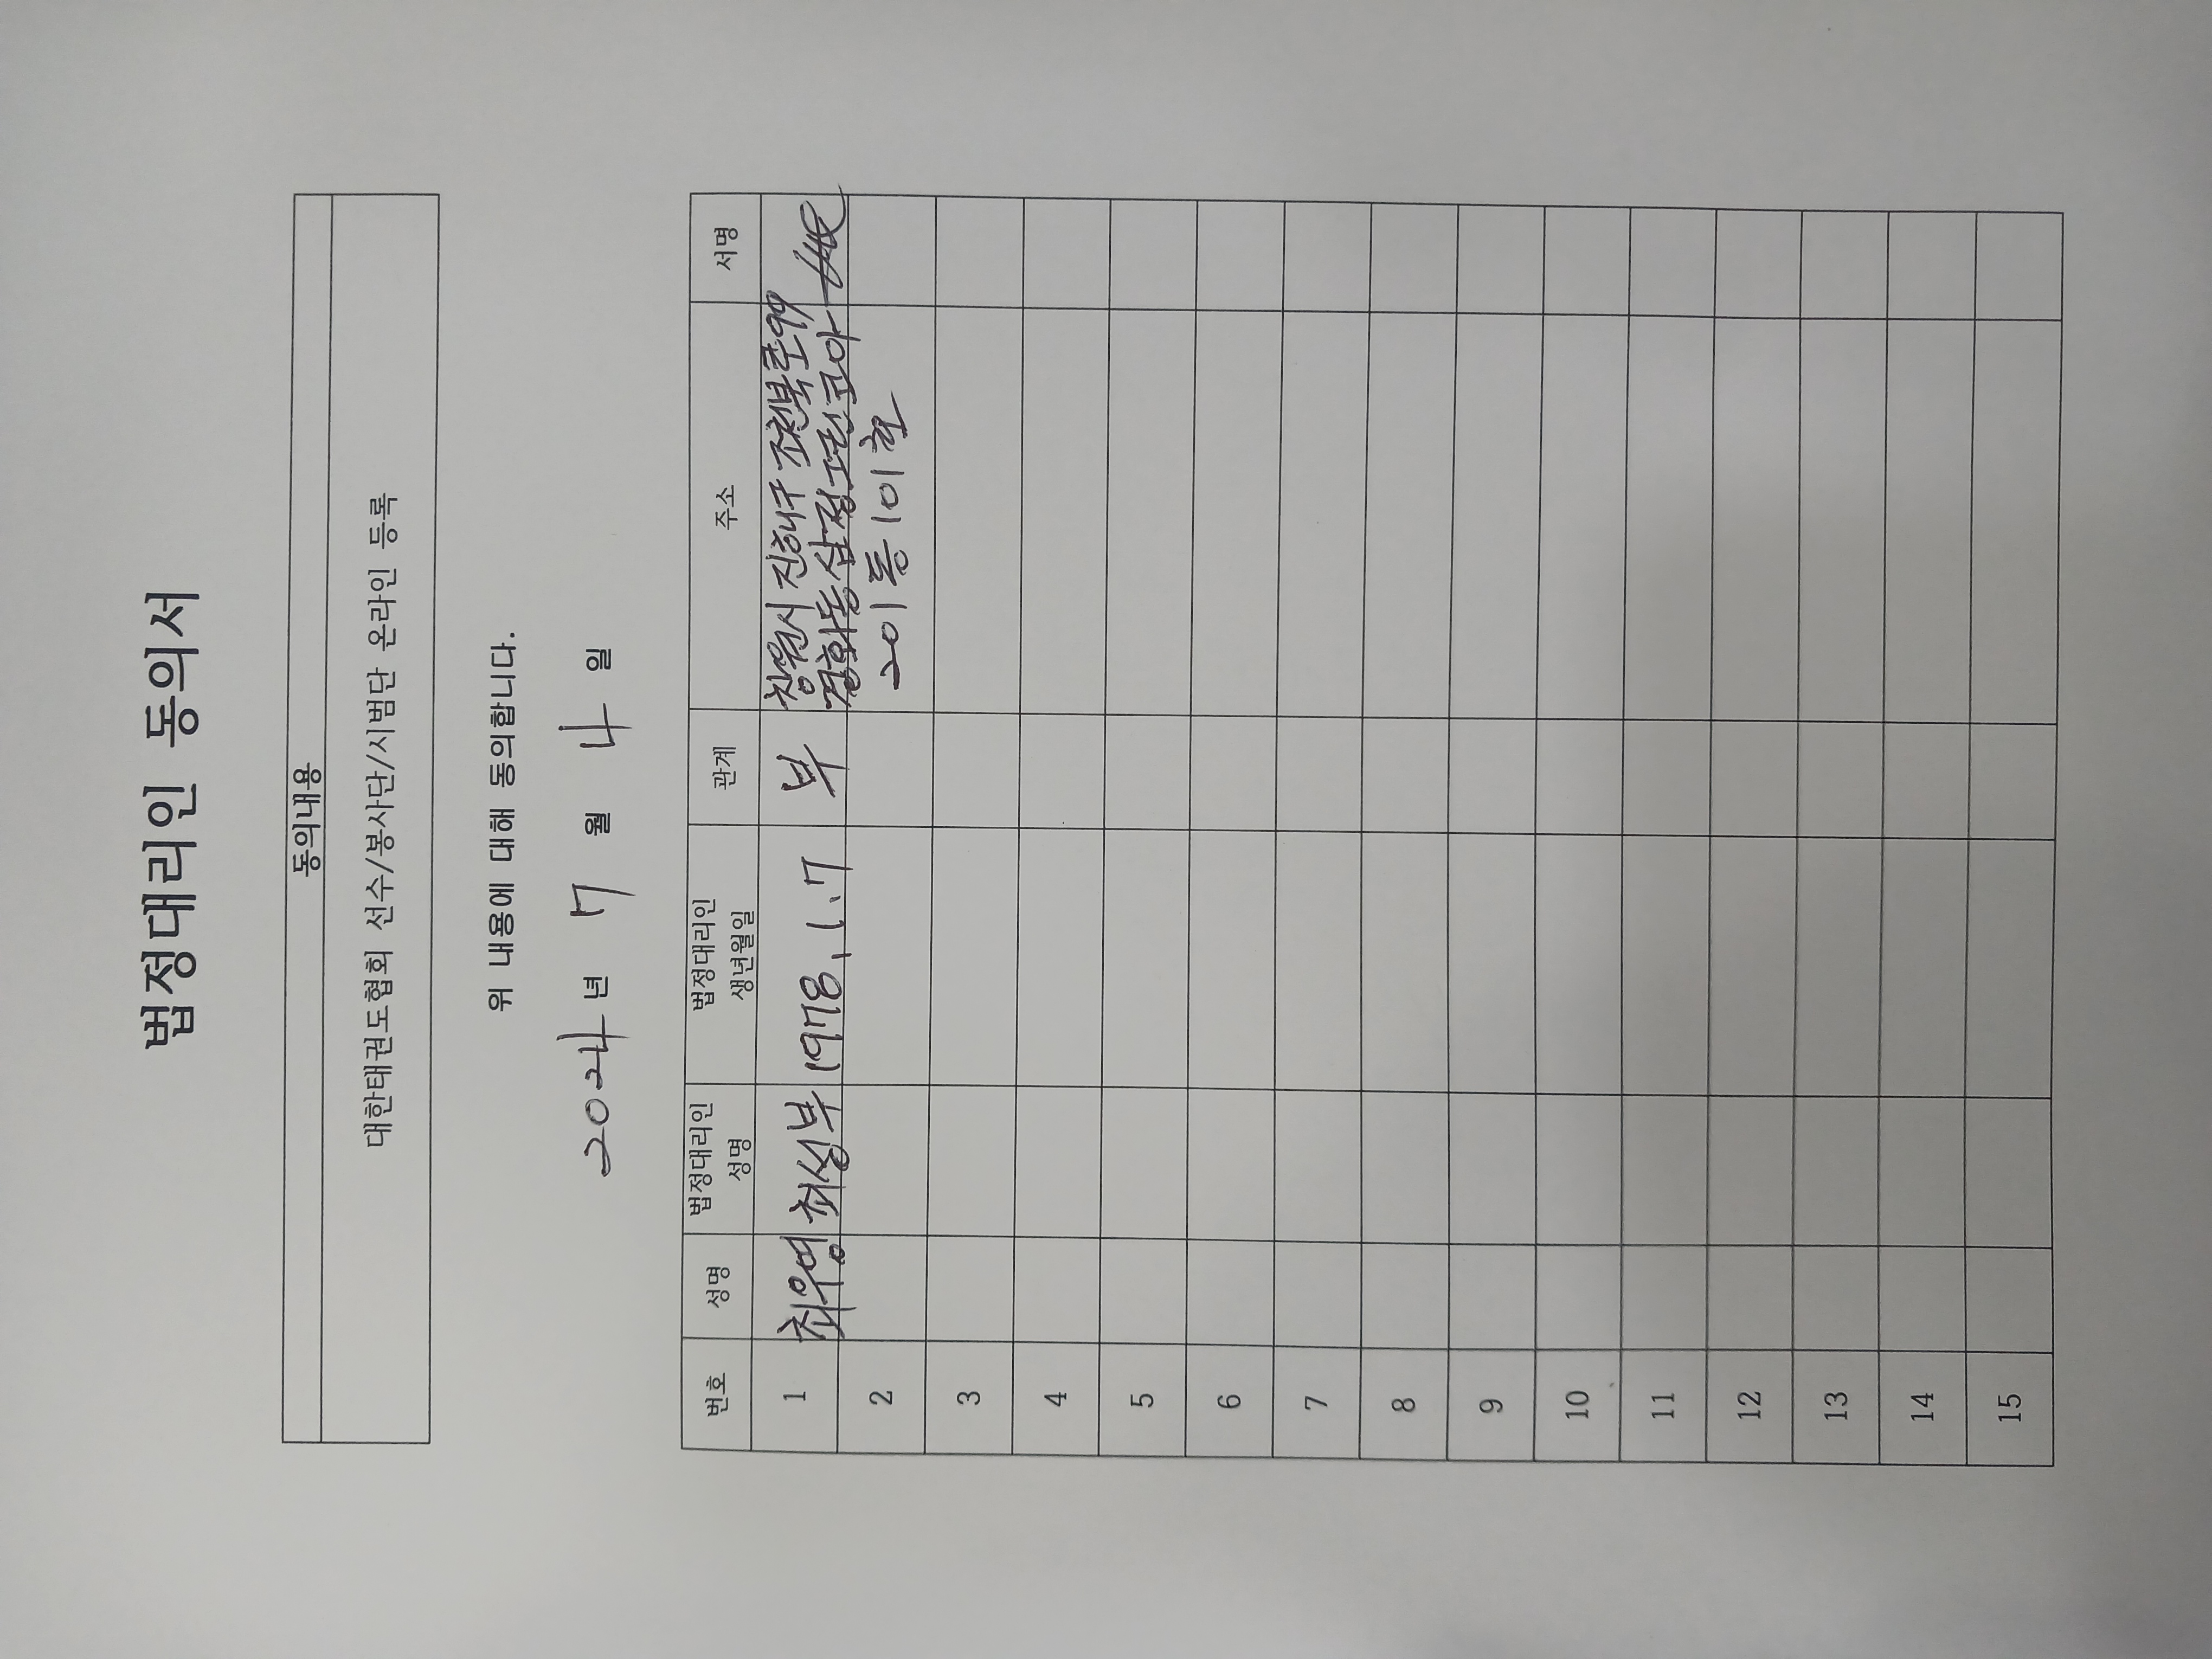 법정대리인 동의서
동의내용
대한태권도협회 선수/봉사단/시범단 온라인 등록
위 내용에 대해 동의합니다.
2024년 7 월 4 일
번호 성명 법정대리인 성명 법정대리인 생년월일 관계 주소 서명
1 최우영 최성부 1978.1.7 부 창원시 진해구 조천북로99
경화동 삼정그린코아
201동 101호
2
3
4
5
6
7
8
9
10
11
12
13
14
15